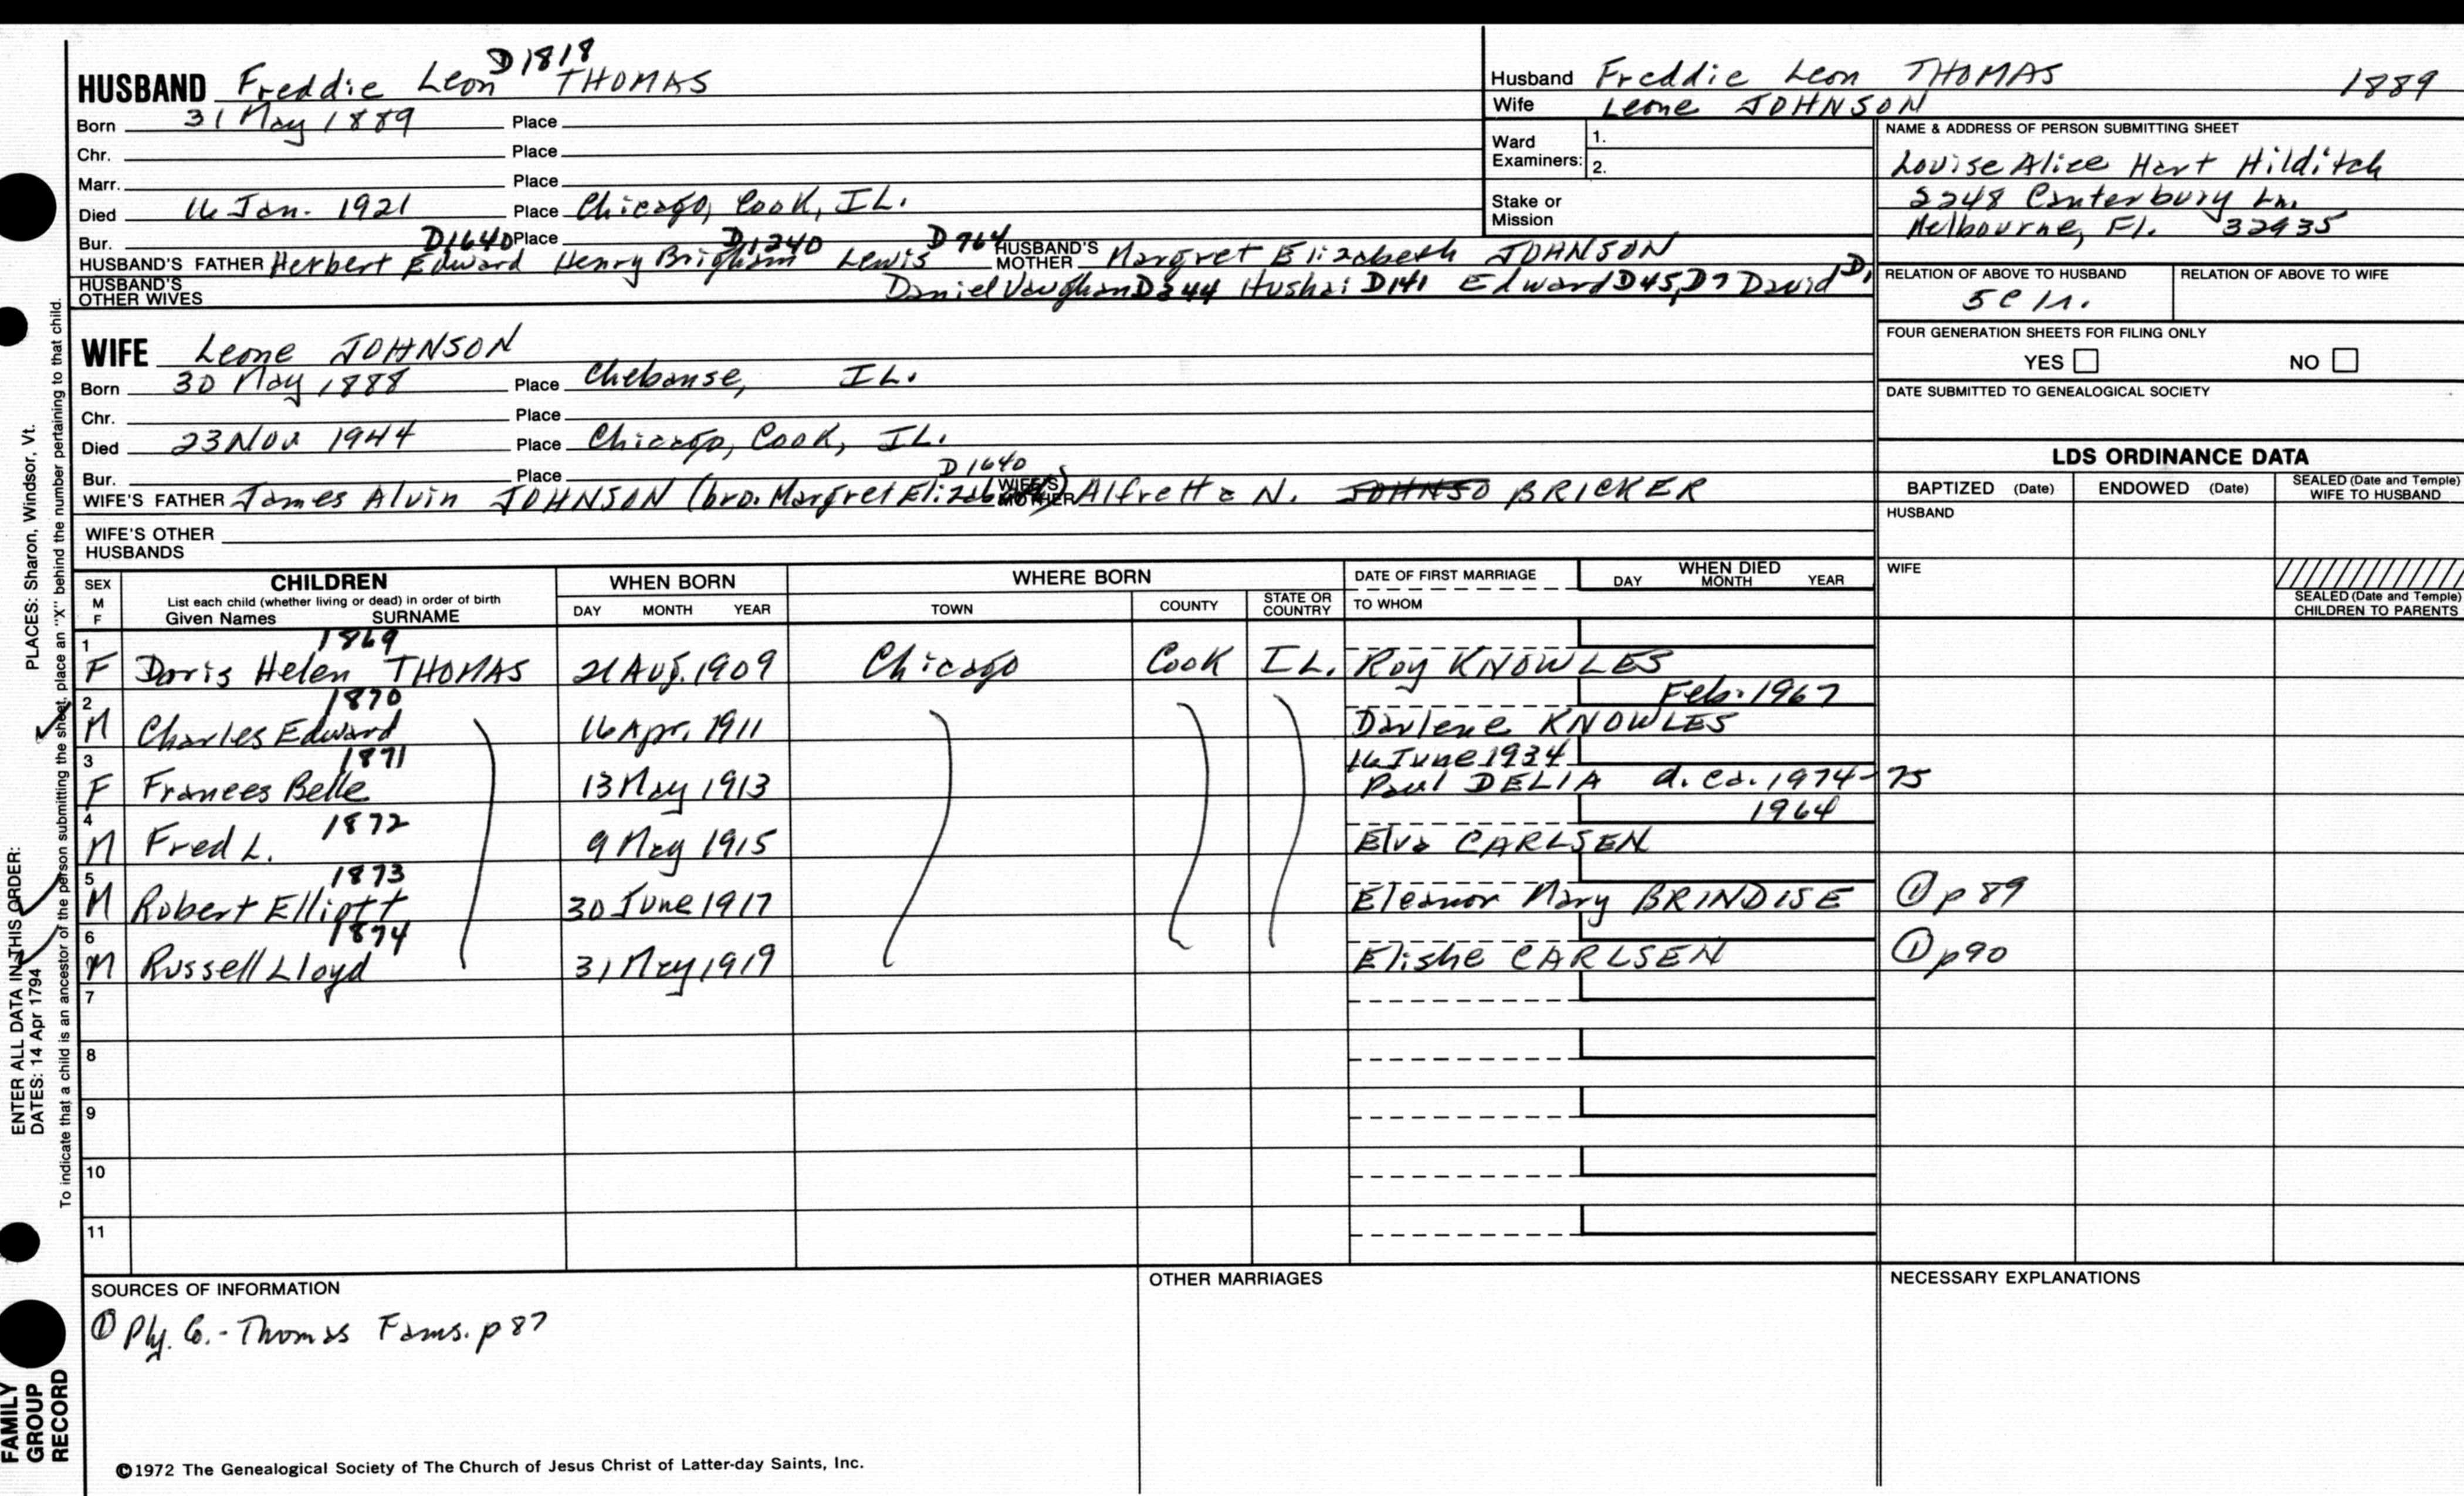 D1818
HUSBAND Freddie Leon THOMAS
Born 31 May 1889 Place
Chr. Place
Marr. Place
Died 16 Jan. 1921 Place Chicago, Cook, IL.
Bur. Place
D1640 D1240 D764
HUSBAND'S FATHER Herbert Edward Henry Brigham Lewis HUSBAND'S MOTHER Margret Elizabeth JOHNSON
HUSBAND'S OTHER WIVES Daniel Vaughan D344 Hushai D141 Edward D45, D7 David D1
Husband Freddie Leon THOMAS 1889
Wife Leone JOHNSON
Ward Examiners: 1.
2.
Stake or Mission
NAME & ADDRESS OF PERSON SUBMITTING SHEET
Louise Alice Hart Hilditch
2248 Canterbury Ln.
Melbourne, Fl. 32935
RELATION OF ABOVE TO HUSBAND RELATION OF ABOVE TO WIFE
FOUR GENERATION SHEETS FOR FILING ONLY
YES NO
DATE SUBMITTED TO GENEALOGICAL SOCIETY
WIFE Leone JOHNSON
Born 30 May 1888 Place Chebanse, IL.
Chr. Place
Died 23 Nov 1944 Place Chicago, Cook, IL.
Bur. Place
D1640
WIFE'S FATHER James Alvin JOHNSON (bro. Margret Elizabeth) WIFE'S MOTHER Alfretta N. JOHNSO BRICKER
WIFE'S OTHER HUSBANDS
LDS ORDINANCE DATA
BAPTIZED (Date) ENDOWED (Date) SEALED (Date and Temple) WIFE TO HUSBAND
HUSBAND
WIFE
SEALED (Date and Temple) CHILDREN TO PARENTS
SEX M F CHILDREN List each child (whether living or dead) in order of birth Given Names SURNAME
WHEN BORN DAY MONTH YEAR
WHERE BORN TOWN COUNTY STATE OR COUNTRY
DATE OF FIRST MARRIAGE TO WHOM
WHEN DIED DAY MONTH YEAR
1 1869
F Doris Helen THOMAS 21 Aug. 1909 Chicago Cook IL. Roy KNOWLES
2 1870 Feb. 1967
M Charles Edward 16 Apr. 1911 Darlene KNOWLES
3 1871 16 June 1934
F Frances Belle 13 May 1913 Paul DELIA d. ca. 1974-75
4 1872 1964
M Fred L. 9 May 1915 Elva CARLSEN
5 1873
M Robert Elliott 30 June 1917 Eleanor Mary BRINDISE ① p 89
6 1874
M Russell Lloyd 31 May 1919 Elishe CARLSEN ① p90
7
8
9
10
11
SOURCES OF INFORMATION
① Ply. Co. - Thomas Fams. p 87
OTHER MARRIAGES
NECESSARY EXPLANATIONS
©1972 The Genealogical Society of The Church of Jesus Christ of Latter-day Saints, Inc.
FAMILY GROUP RECORD
ENTER ALL DATA IN THIS ORDER:
DATES: 14 Apr 1794
PLACES: Sharon, Windsor, Vt.
To indicate that a child is an ancestor of the person submitting the sheet, place an "X" behind the number pertaining to that child.